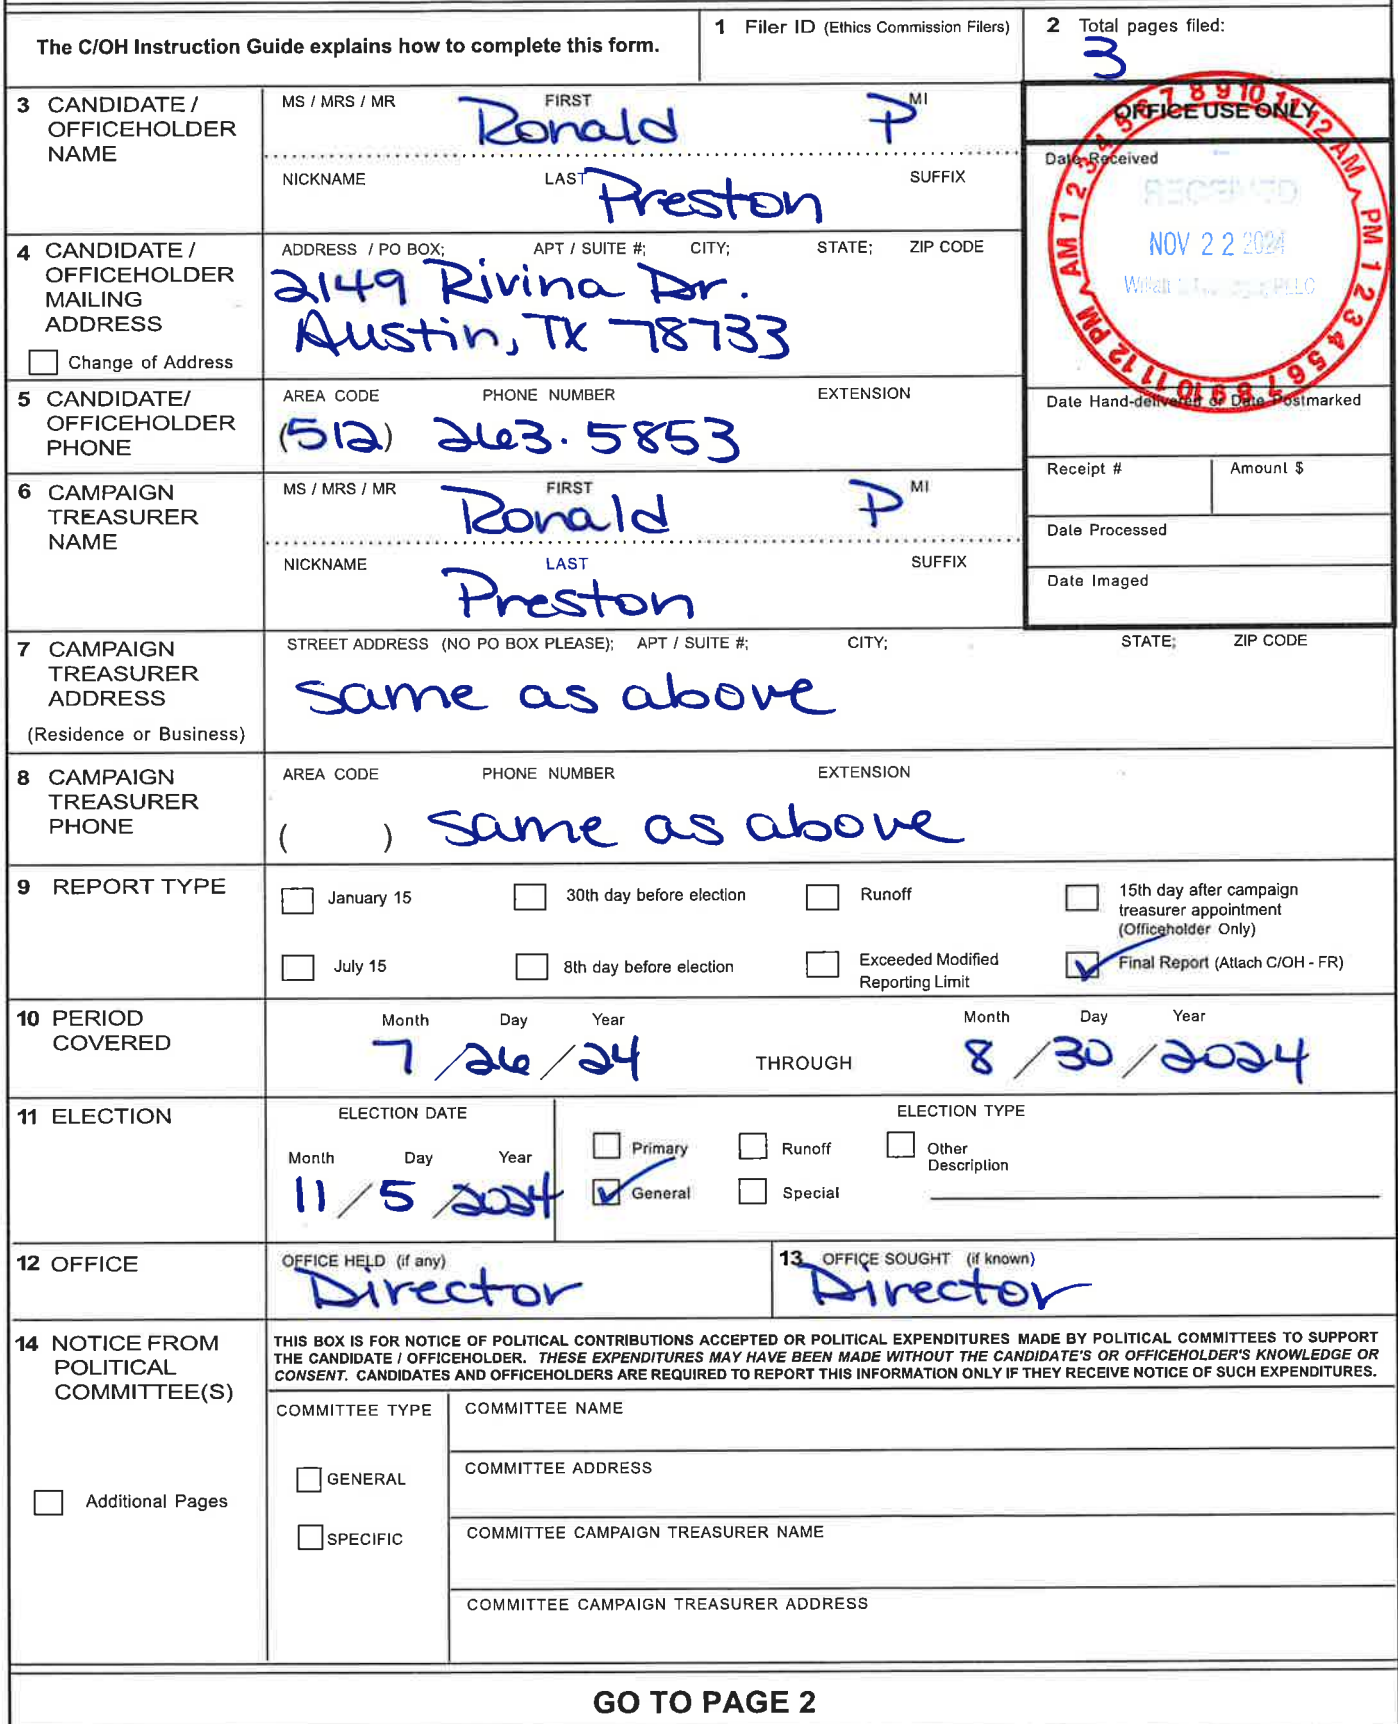 The C/OH Instruction Guide explains how to complete this form.
1 Filer ID (Ethics Commission Filers)
2 Total pages filed:
3
OFFICE USE ONLY
Date Received
RECEIVED
NOV 22 2024
AM 1 2 3 4 5 6 7 8 9 10 11 12 AM PM 1 2 3 4 5 6 7 8 9 10 11 12 PM
Date Hand-delivered or Date Postmarked
Receipt #
Amount $
Date Processed
Date Imaged
3 CANDIDATE / OFFICEHOLDER NAME
MS / MRS / MR FIRST MI
Ronald P
NICKNAME LAST SUFFIX
Preston
4 CANDIDATE / OFFICEHOLDER MAILING ADDRESS
Change of Address
ADDRESS / PO BOX; APT / SUITE #; CITY; STATE; ZIP CODE
2149 Rivina Dr.
Austin, TX 78733
5 CANDIDATE/ OFFICEHOLDER PHONE
AREA CODE PHONE NUMBER EXTENSION
(512) 263.5853
6 CAMPAIGN TREASURER NAME
MS / MRS / MR FIRST MI
Ronald P
NICKNAME LAST SUFFIX
Preston
7 CAMPAIGN TREASURER ADDRESS
(Residence or Business)
STREET ADDRESS (NO PO BOX PLEASE); APT / SUITE #; CITY; STATE; ZIP CODE
same as above
8 CAMPAIGN TREASURER PHONE
AREA CODE PHONE NUMBER EXTENSION
( ) same as above
9 REPORT TYPE
January 15
30th day before election
Runoff
15th day after campaign treasurer appointment (Officeholder Only)
July 15
8th day before election
Exceeded Modified Reporting Limit
Final Report (Attach C/OH - FR)
10 PERIOD COVERED
Month Day Year
7 / 26 / 24
THROUGH
Month Day Year
8 / 30 / 2024
11 ELECTION
ELECTION DATE
Month Day Year
11 / 5 / 2024
ELECTION TYPE
Primary
Runoff
Other Description
General
Special
12 OFFICE
OFFICE HELD (if any)
Director
13 OFFICE SOUGHT (if known)
Director
14 NOTICE FROM POLITICAL COMMITTEE(S)
Additional Pages
THIS BOX IS FOR NOTICE OF POLITICAL CONTRIBUTIONS ACCEPTED OR POLITICAL EXPENDITURES MADE BY POLITICAL COMMITTEES TO SUPPORT
THE CANDIDATE / OFFICEHOLDER. THESE EXPENDITURES MAY HAVE BEEN MADE WITHOUT THE CANDIDATE'S OR OFFICEHOLDER'S KNOWLEDGE OR
CONSENT. CANDIDATES AND OFFICEHOLDERS ARE REQUIRED TO REPORT THIS INFORMATION ONLY IF THEY RECEIVE NOTICE OF SUCH EXPENDITURES.
COMMITTEE TYPE
GENERAL
SPECIFIC
COMMITTEE NAME
COMMITTEE ADDRESS
COMMITTEE CAMPAIGN TREASURER NAME
COMMITTEE CAMPAIGN TREASURER ADDRESS
GO TO PAGE 2